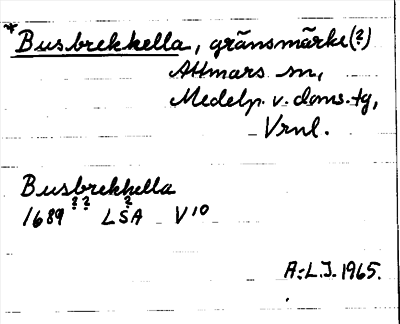 *Busbrekkella, gränsmärke(?)
Attmars sn,
Medelp. v. doms. tg,
Vrnl.
Busbrekkella
1689 ? ? LSA ? V10
A.-L.J. 1965.